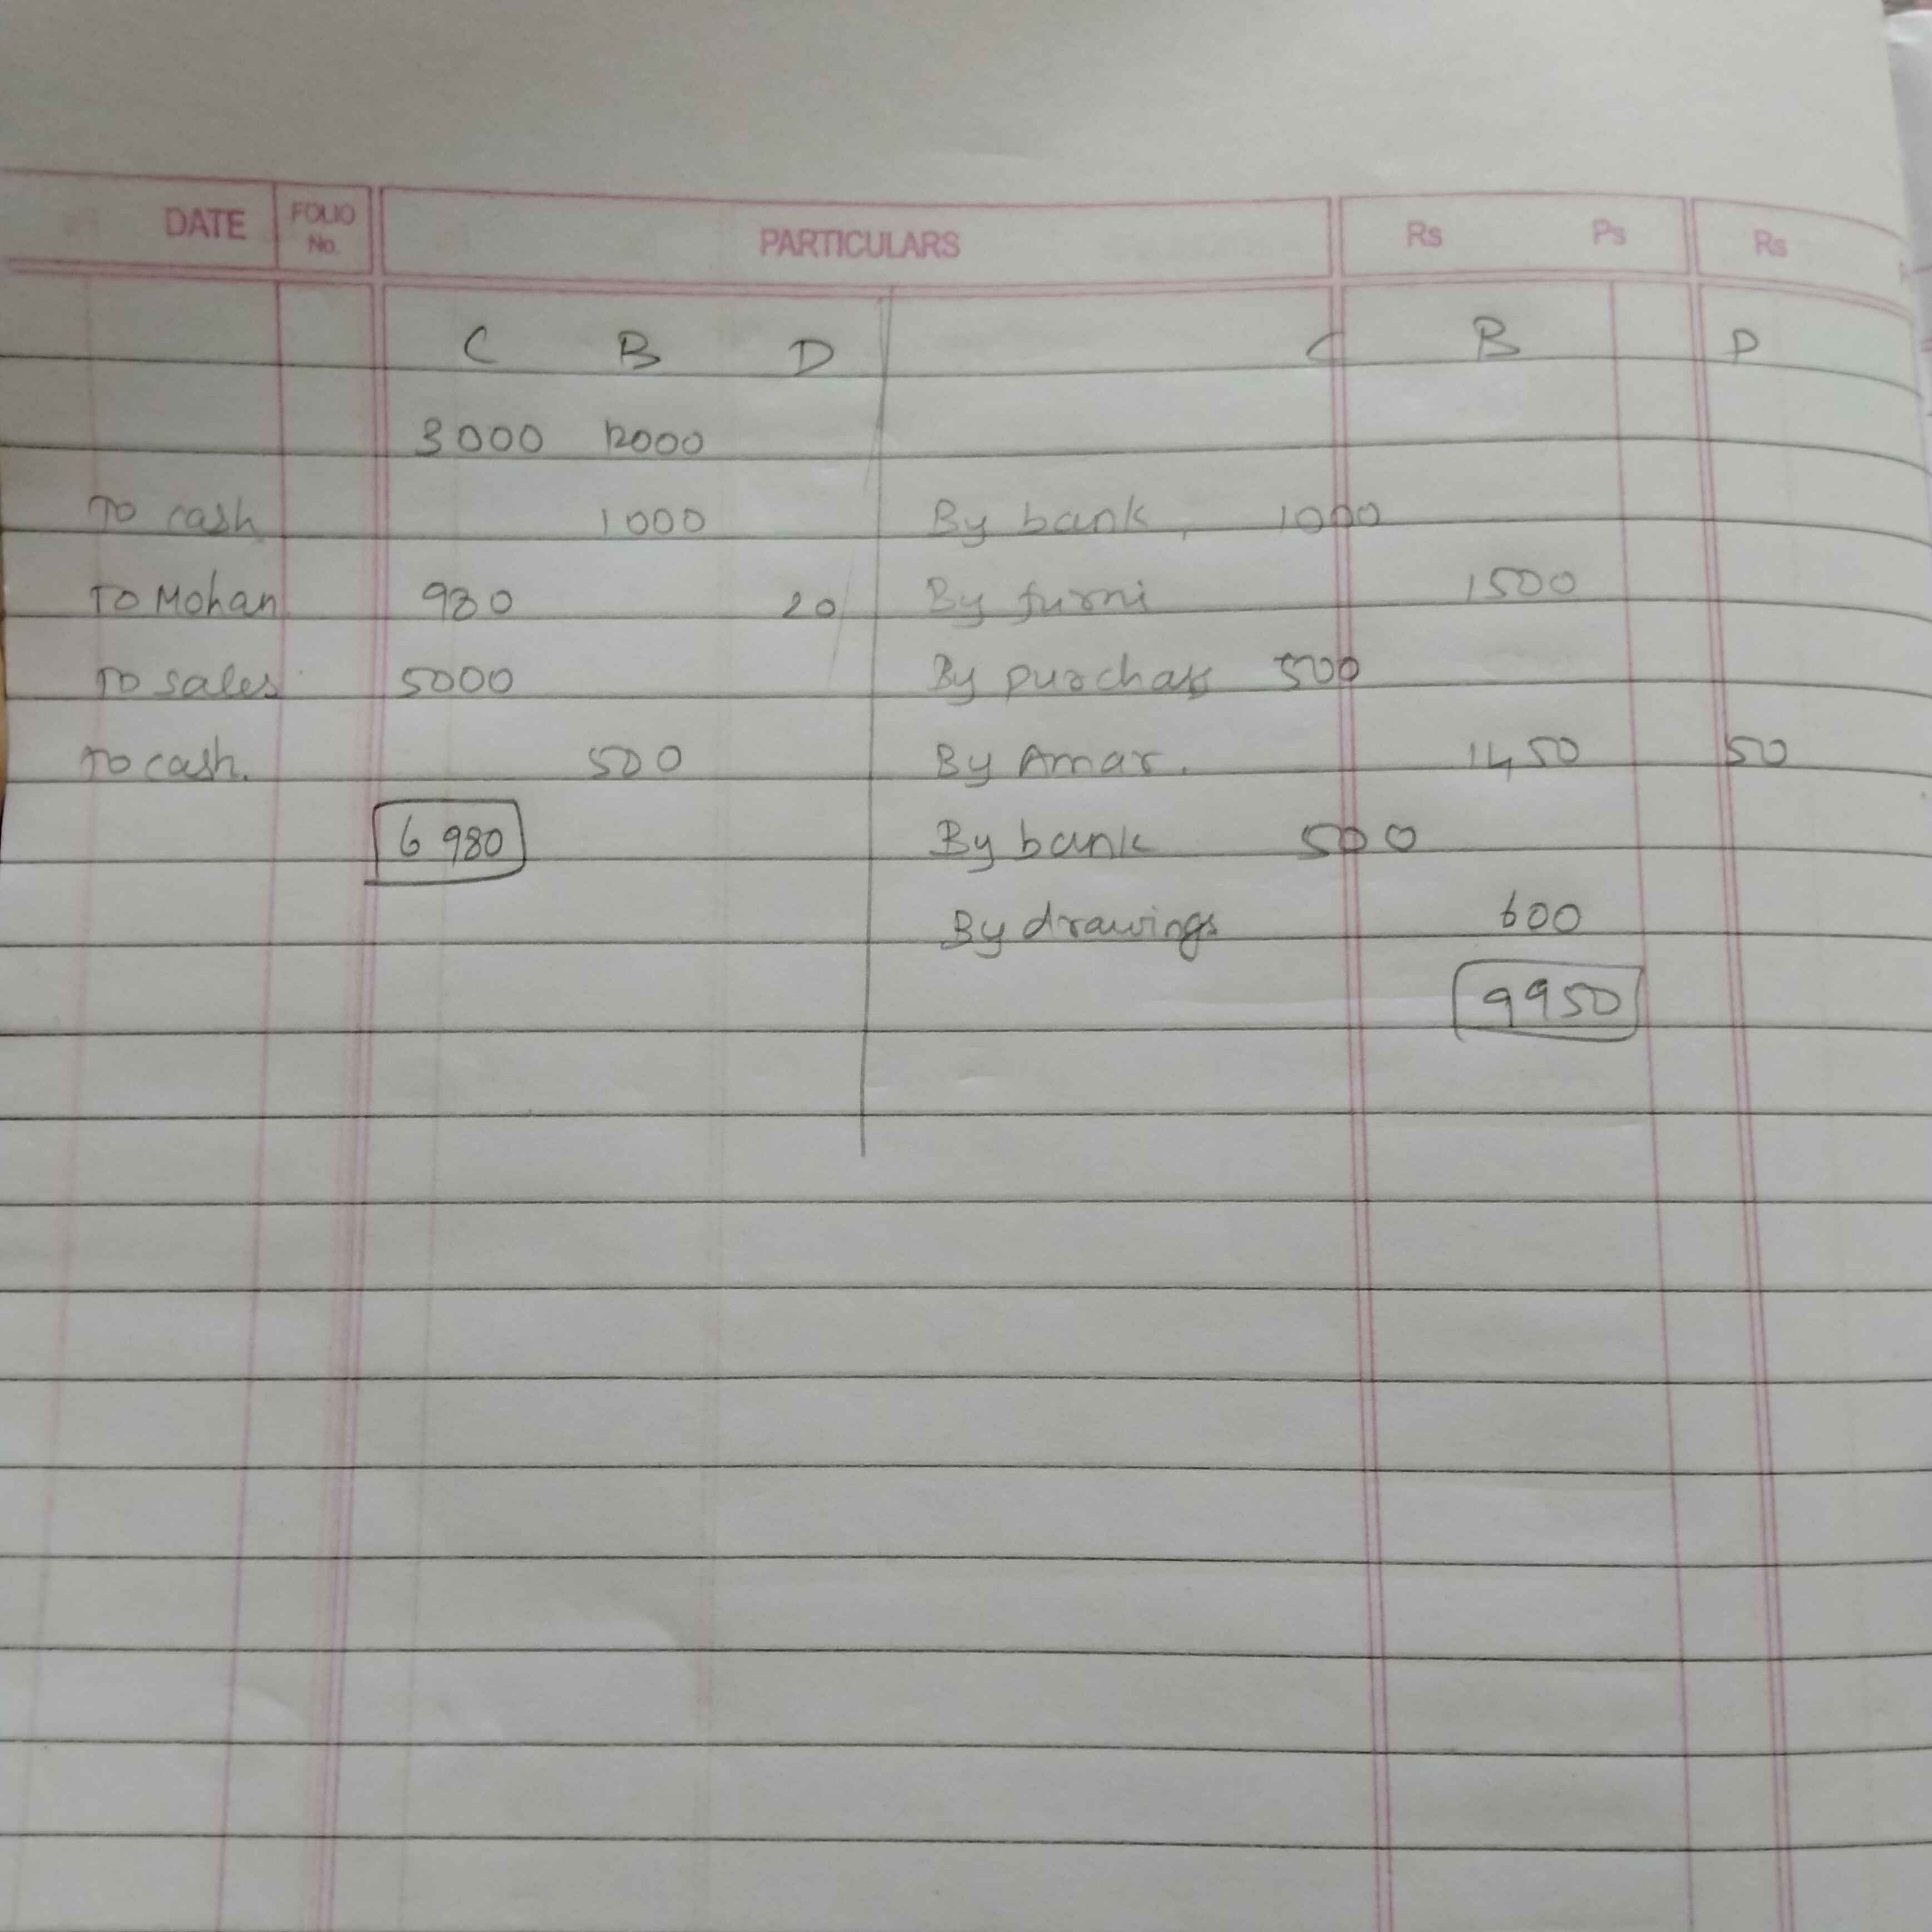 DATE FOLIO No. PARTICULARS Rs Ps Rs
C B D C B D
3000 12000
To cash 1000 By bank, 1000
To Mohan 980 20 By furni 1500
To sales 5000 By purchase 500
To cash. 500 By Amar. 1450 50
6 980 By bank 500
By drawings 600
9950